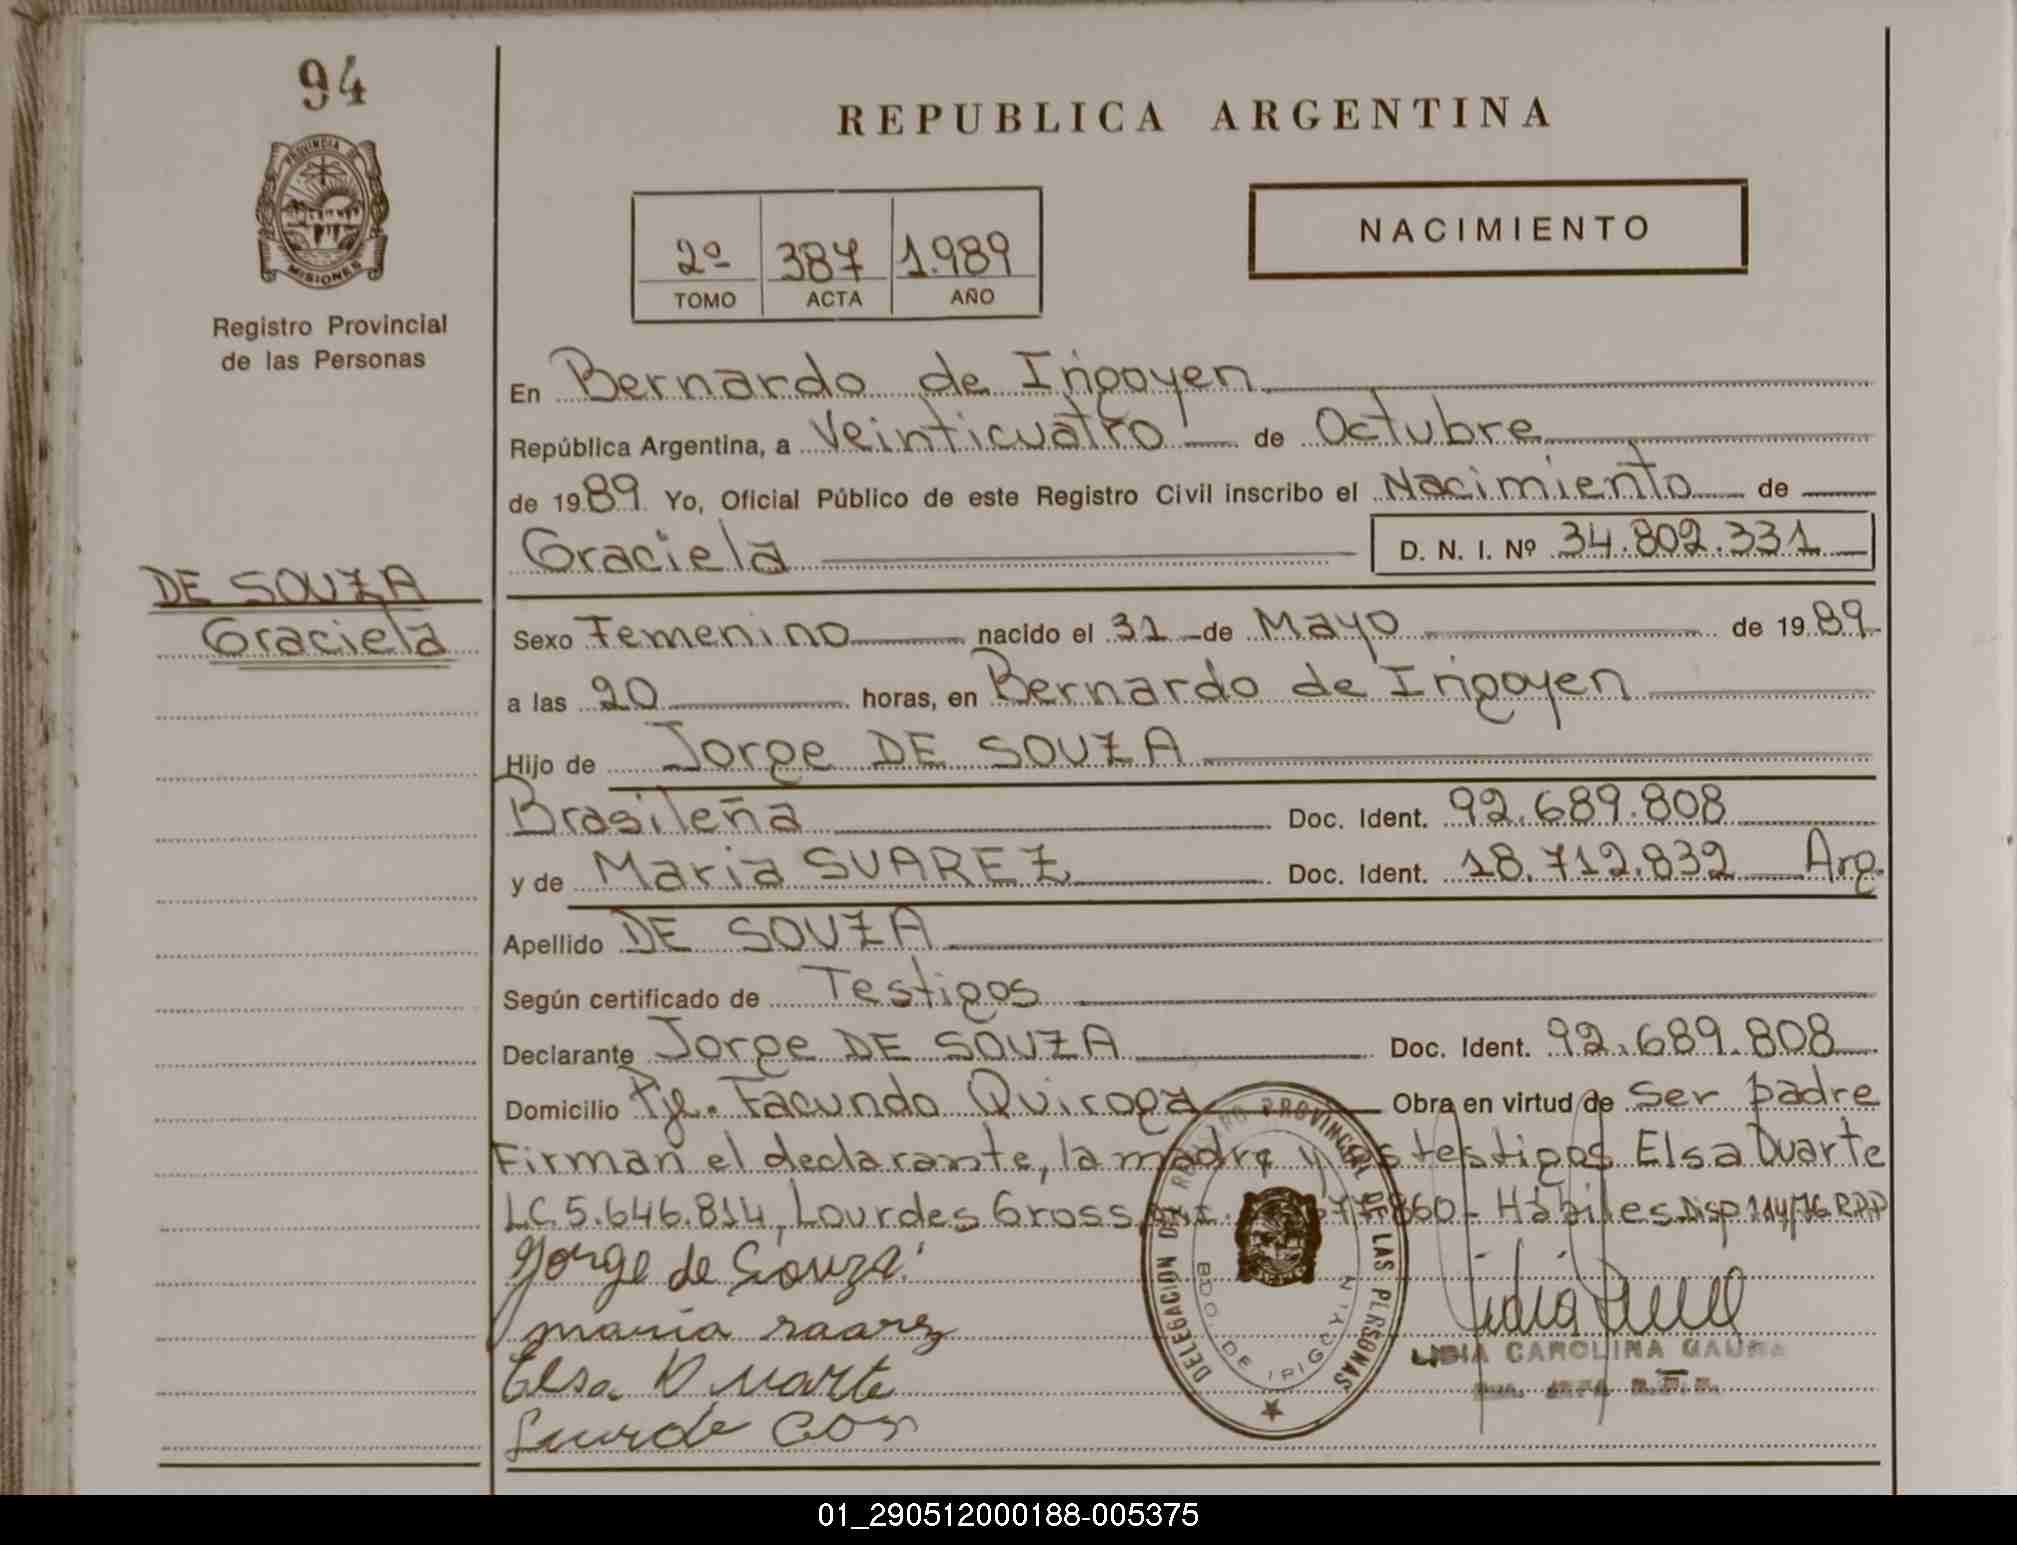 94
PROVINCIA DE
MISIONES
Registro Provincial
de las Personas
REPUBLICA ARGENTINA
NACIMIENTO
2º 387 1.989
TOMO ACTA AÑO
En Bernardo de Irigoyen
República Argentina, a Veinticuatro de Octubre
de 1989 Yo, Oficial Público de este Registro Civil inscribo el Nacimiento de
Graciela D. N. I. Nº 34.802.331
DE SOUZA
Graciela
Sexo Femenino nacido el 31 de Mayo de 1989
a las 20 horas, en Bernardo de Irigoyen
Hijo de Jorge DE SOUZA
Brasileña Doc. Ident. 92.689.808
y de Maria SUAREZ Doc. Ident. 18.712.832 Arg.
Apellido DE SOUZA
Según certificado de Testigos
Declarante Jorge DE SOUZA Doc. Ident. 92.689.808
Domicilio Pje. Facundo Quiroga Obra en virtud de Ser padre
Firman el declarante, la madre y los testigos Elsa Duarte
LC 5.646.814, Lourdes Gross 860 - Hábiles Disp 114/76 RPP
Jorge de Souza
maria suarez
Elsa Duarte
DELEGACION DEL REGISTRO PROVINCIAL DE LAS PERSONAS
BDO DE IRIGOYEN
LIDIA CAROLINA
01_290512000188-005375